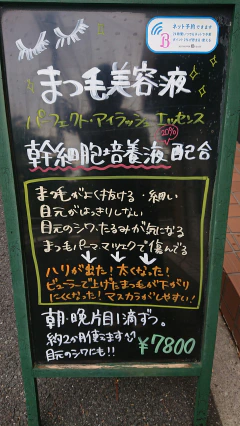 ネット予約できます
まつ毛美容液
パーフェクト・アイラッシュエッセンス
幹細胞培養液20%配合
まつ毛がよく抜ける・細い
目元がはっきりしない
目元のシワ・たるみが気になる
まつ毛パーマ、マツエクで傷んでる
ハリが出た!太くなった!
ビューラーで上げたまつ毛が下がり
にくくなった!マスカラがしやすい!
朝・晩片目1滴ずつ。
約2か月使えます
目元のシワにも!!
¥7800